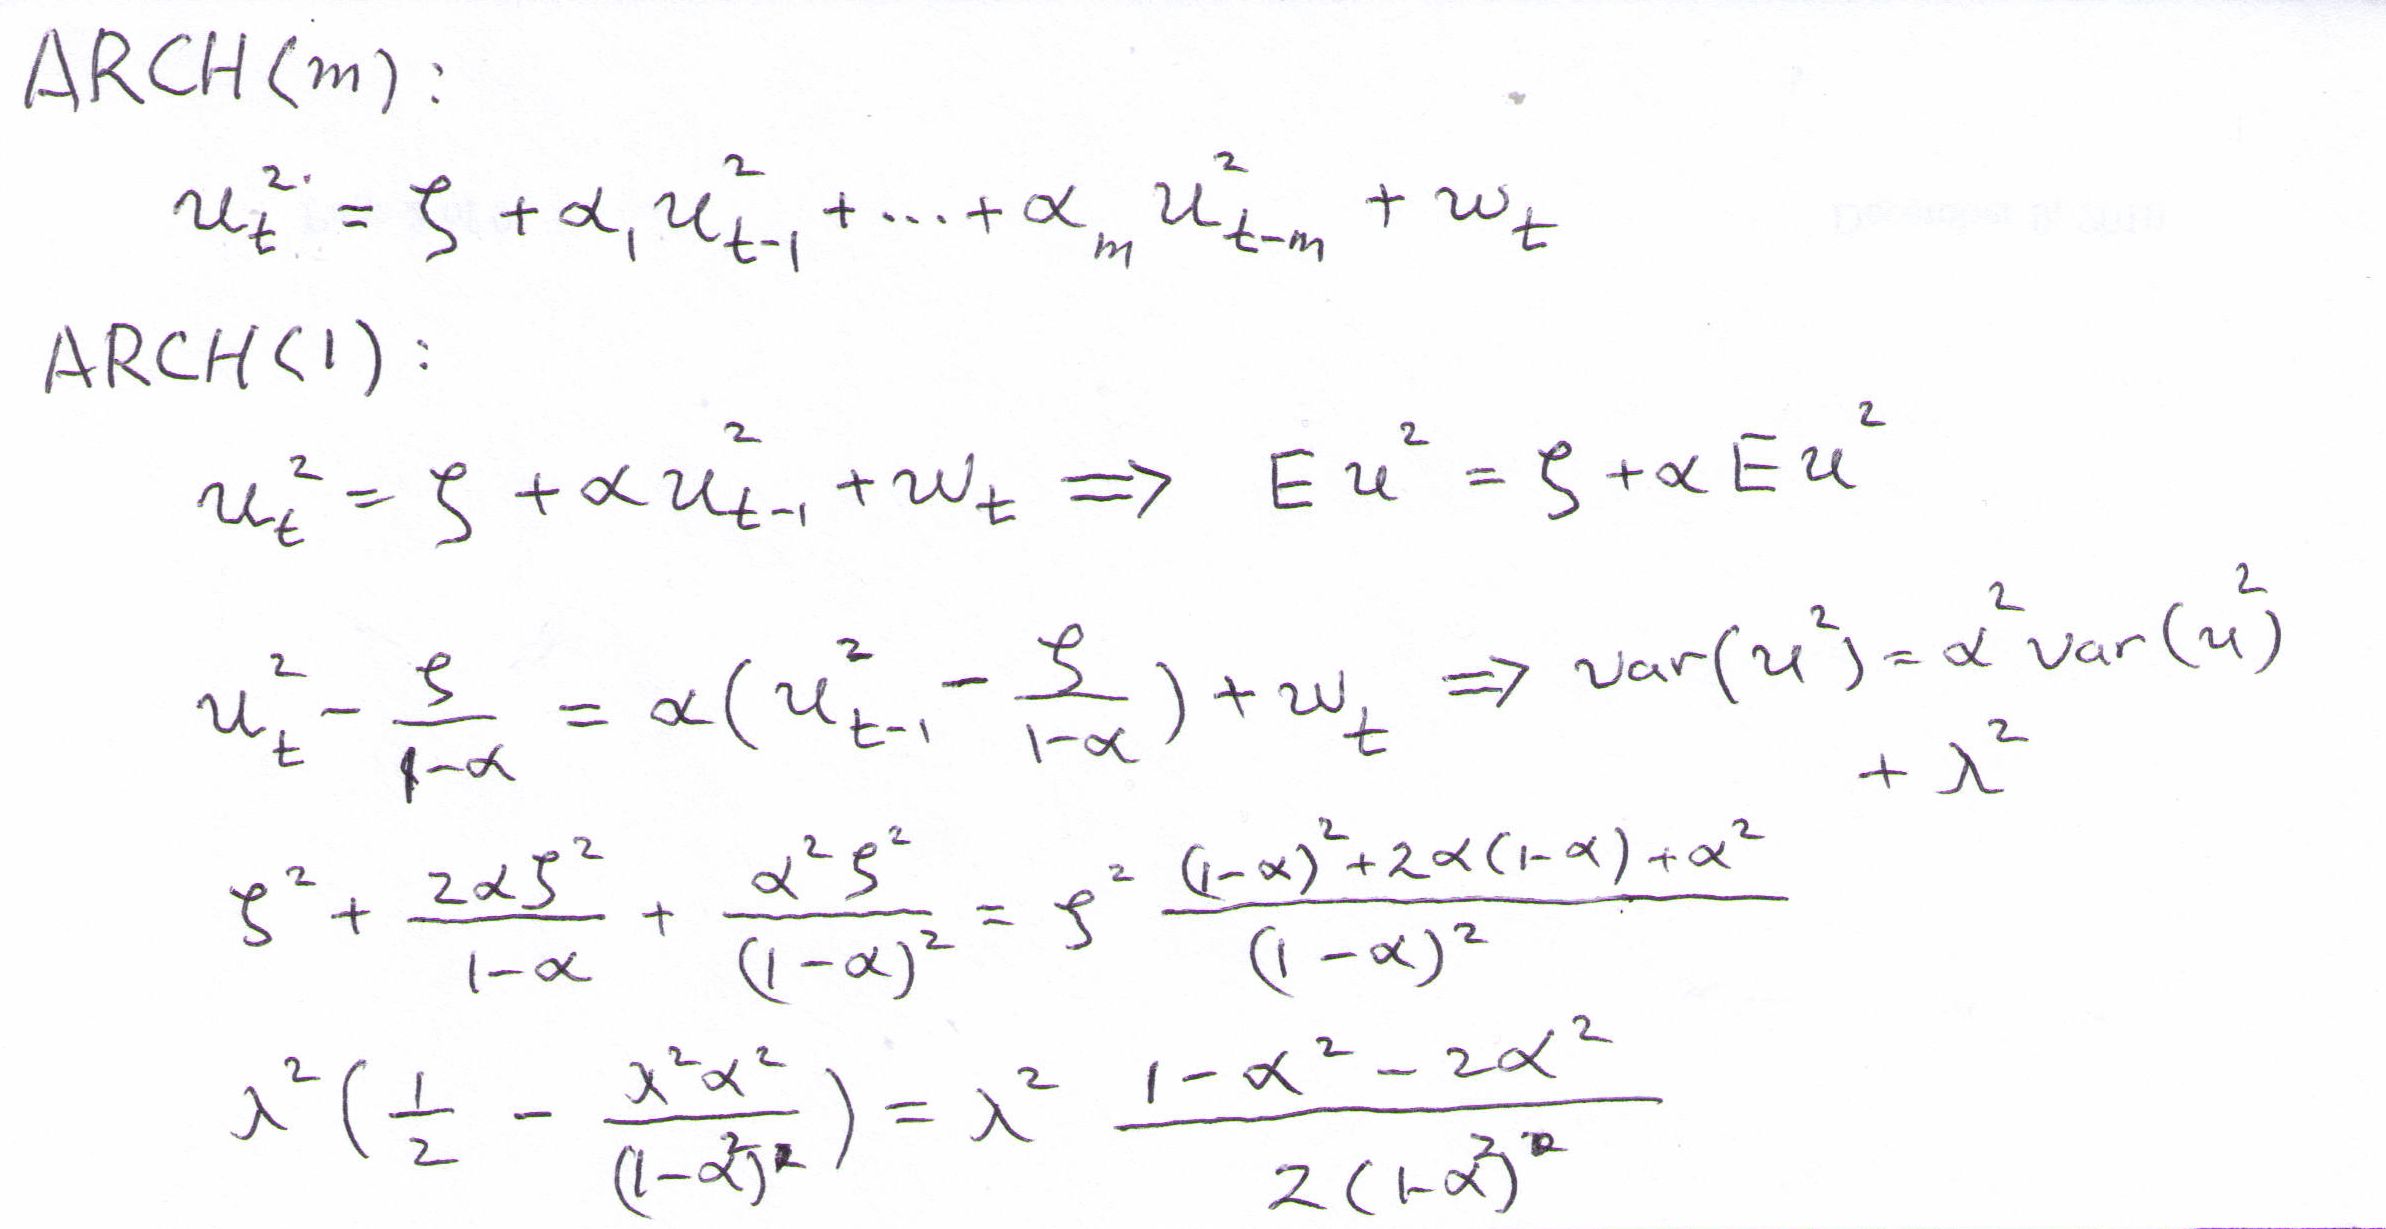 ARCH(m):
u_t^2 = ζ + α_1 u_{t-1}^2 + ... + α_m u_{t-m}^2 + w_t
ARCH(1):
u_t^2 = ζ + α u_{t-1}^2 + w_t ⇒ E u^2 = ζ + α E u^2
u_t^2 - ζ/(1-α) = α(u_{t-1}^2 - ζ/(1-α)) + w_t ⇒ var(u^2) = α^2 var(u^2)
+ λ^2
ζ^2 + 2αζ^2/(1-α) + α^2ζ^2/(1-α)^2 = ζ^2 ((1-α)^2 + 2α(1-α) + α^2)/(1-α)^2
λ^2 (1/2 - λ^2α^2/(1-α^2)) = λ^2 (1-α^2-2α^2)/(2(1-α^2))